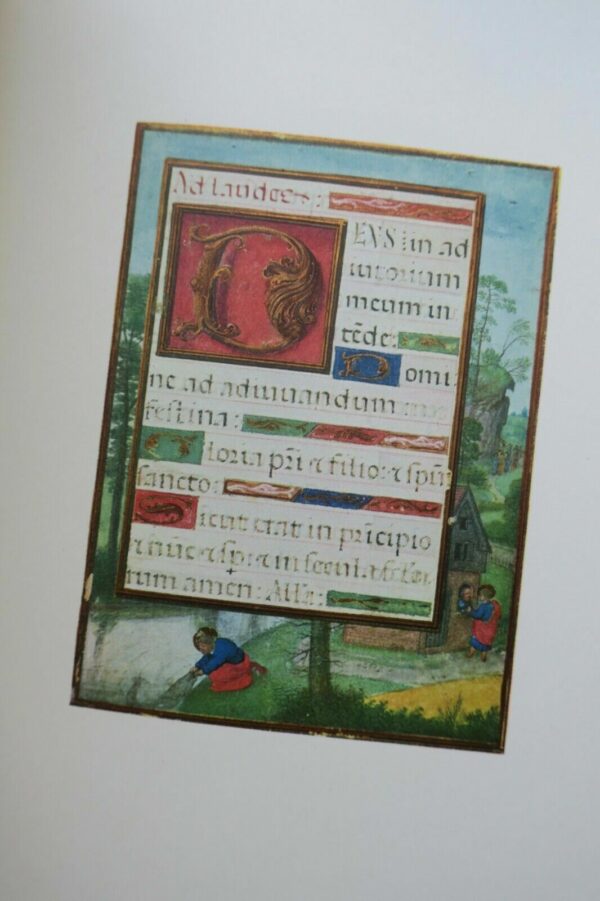 Ad laudes:
DEVS in ad
iutorium
meum in
tēde:
Domi
ne ad adiuuandum me
festina:
Gloria pr̄i ⁊ filio: ⁊ spūi
sancto:
Sicut erat in prīcipio
⁊ nūc ⁊ sp̄: ⁊ in secula seclo
rum amen: All'a: